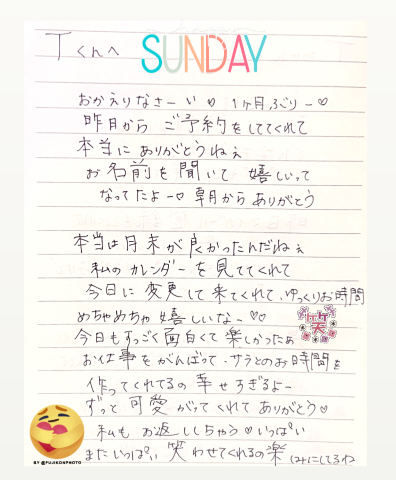 Tくんへ
SUNDAY
おかえりなさーい♡ 1ヶ月ぶりー♡
昨日から ご予約をしててくれて
本当に ありがとうねぇ
お名前を聞いて 嬉しいって
なってたよー♡ 朝から ありがとう
本当は月末が良かったんだねぇ
私の カレンダーを見ててくれて
今日に 変更して来てくれて、ゆっくりお時間
めちゃめちゃ嬉しいなー♡♡
笑
今日もすっごく面白くて楽しかったぁ
お仕事をがんばって、サラとのお時間を
作ってくれてるの 幸せすぎるよー
ずっと 可愛がってくれて ありがとう♡
私も お返ししちゃう♡いっぱい
またいっぱい 笑わせてくれるの楽しみにしてるね
BY @FUJIKONPHOTO